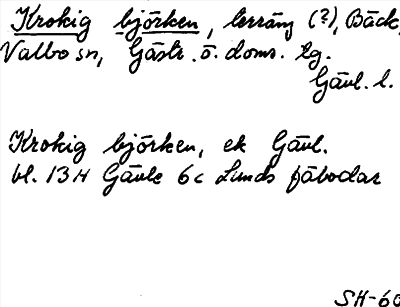 Krokig björken, terräng (?), Bäck,
Valbo sn, Gästr. ö. doms. tg.
Gävl. l.
Krokig björken, ek Gävl.
bl. 13H Gävle 6c Lunds fäbodar
SH-60